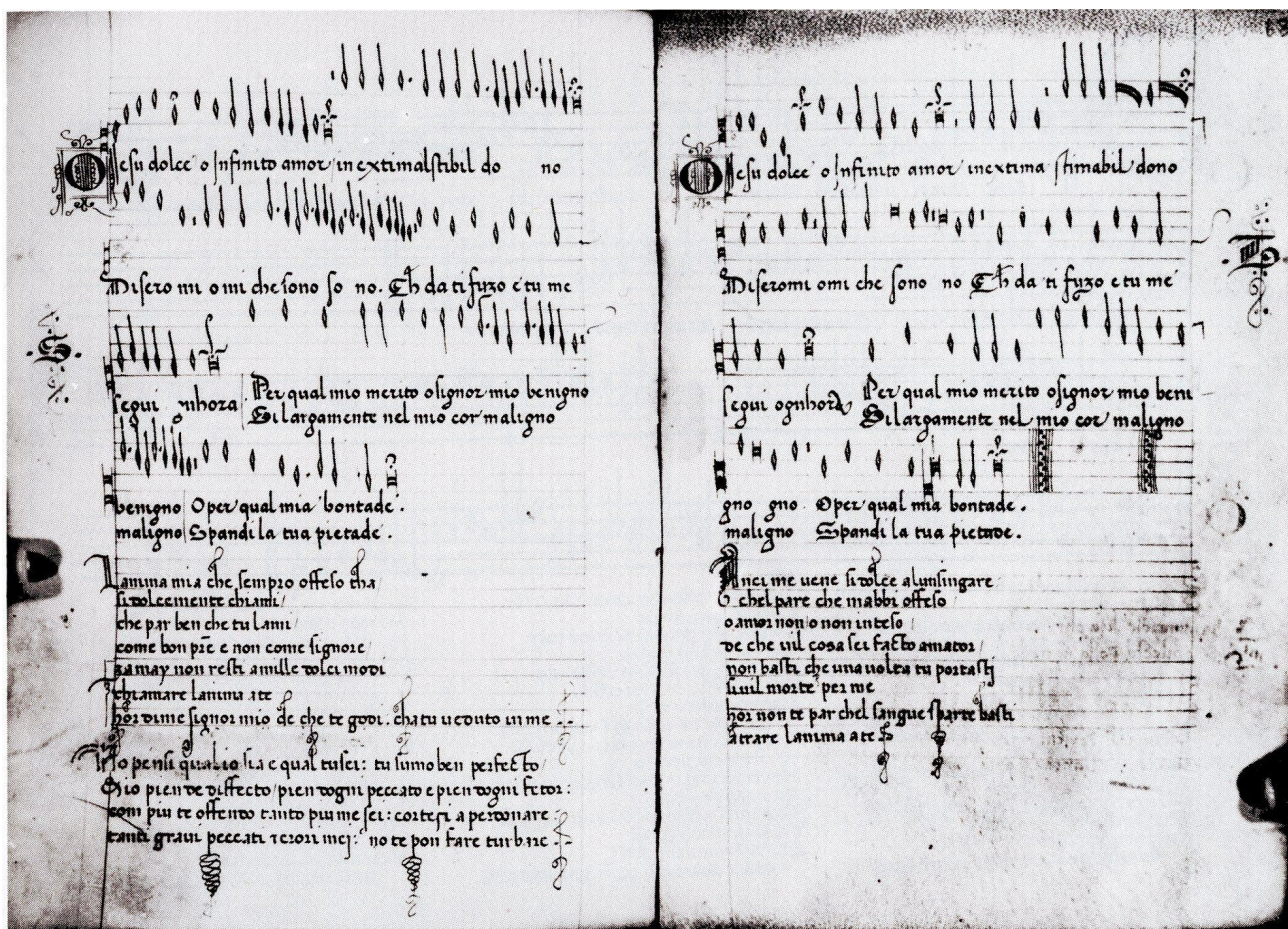 O Iesu dolce o Infinito amor in extimalstibil do no
Misero mi o mi che sono so no. Ch da ti fuzo e tu me
segui gnhora Per qual mio merito o signor mio benigno
Si largamente nel mio cor maligno
benigno O per qual mia bontade.
maligno Spandi la tua pietade.
Lanima mia che sempro offeso tha
si dolcemente chiami
che par ben che tu lami
come bon pr̄e e non come signore
zamay non resti a mille dolci modi
chiamare lanima a te
hor dime signor mio de che te godi. cha tu veduto in me
No pensi qual io sia e qual tu sei: tu sumo ben perfecto
Gio pien de diffecto pien dogni peccato e pien dogni fetor:
com piu te offendo tanto piu me sei: cortesi a perdonare
tanti gravi peccati erori mei: no te pon fare turbare
S
O Iesu dolce o Infinito amor in extima stimabil dono
Misero mi o mi che sono no Ch da ti fuzo e tu me
segui ognhora Per qual mio merito o signor mio beni
Si largamente nel mio cor maligno
gno gno. O per qual mia bontade.
maligno Spandi la tua pietade.
Anci me vene si dolce a lunsingare
chel pare che mabbi offeso
o amor non o non inteso
de che vil cosa sei facto amator
non basti che una volta tu portasti
si vil morte per me
hor non te par chel sangue sparte basti
a trare lanima a te
A